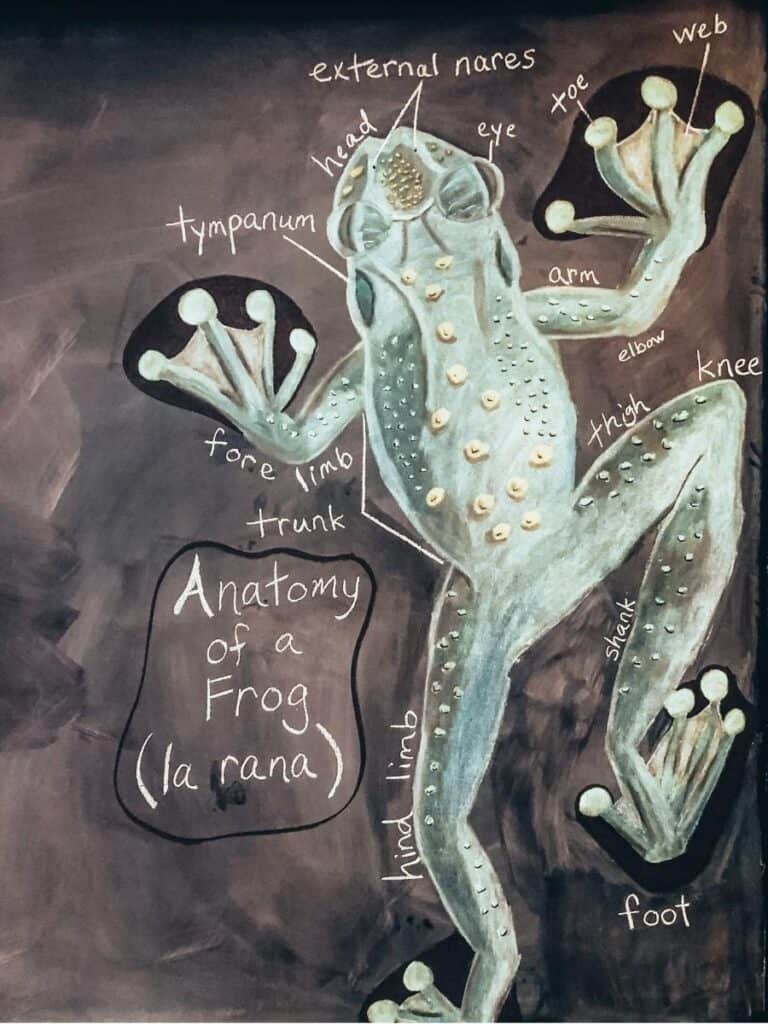 web
external nares
toe
head
eye
tympanum
arm
elbow
knee
thigh
fore limb
trunk
Anatomy
of a
Frog
(la rana)
shank
hind limb
foot